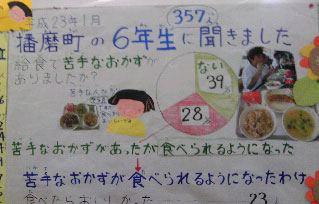 平成23年1月
357人
播磨町の6年生に聞きました
給食で苦手なおかずが
ありましたか?
ない
39
28
苦手なおかずがあったが食べられるようになった
苦手なおかずが食べられるようになったわけ
食べたらおいしかった 23人